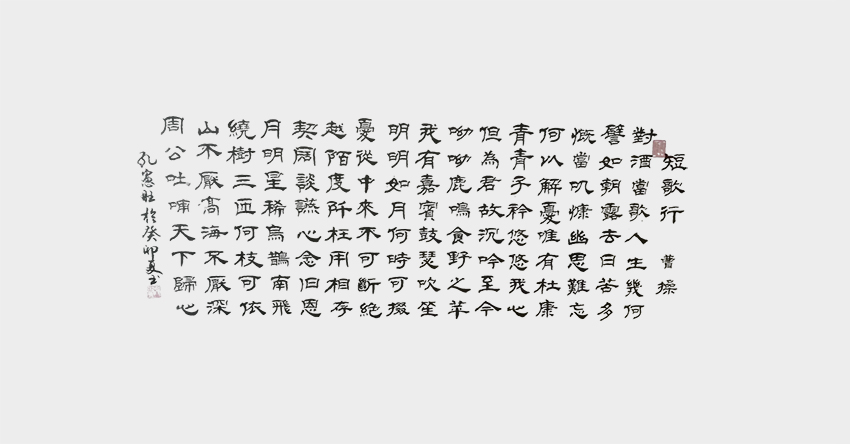 短歌行 曹操
對酒當歌人生幾何
譬如朝露去日苦多
慨當以慷幽思難忘
何以解憂唯有杜康
青青子衿悠悠我心
但為君故沉吟至今
呦呦鹿鳴食野之苹
我有嘉賓鼓瑟吹笙
明明如月何時可掇
憂從中來不可斷絕
越陌度阡枉用相存
契闊談讌心念旧恩
月明星稀烏鵲南飛
繞樹三匝何枝可依
山不厭高海不厭深
周公吐哺天下歸心
孔憲於癸卯夏书